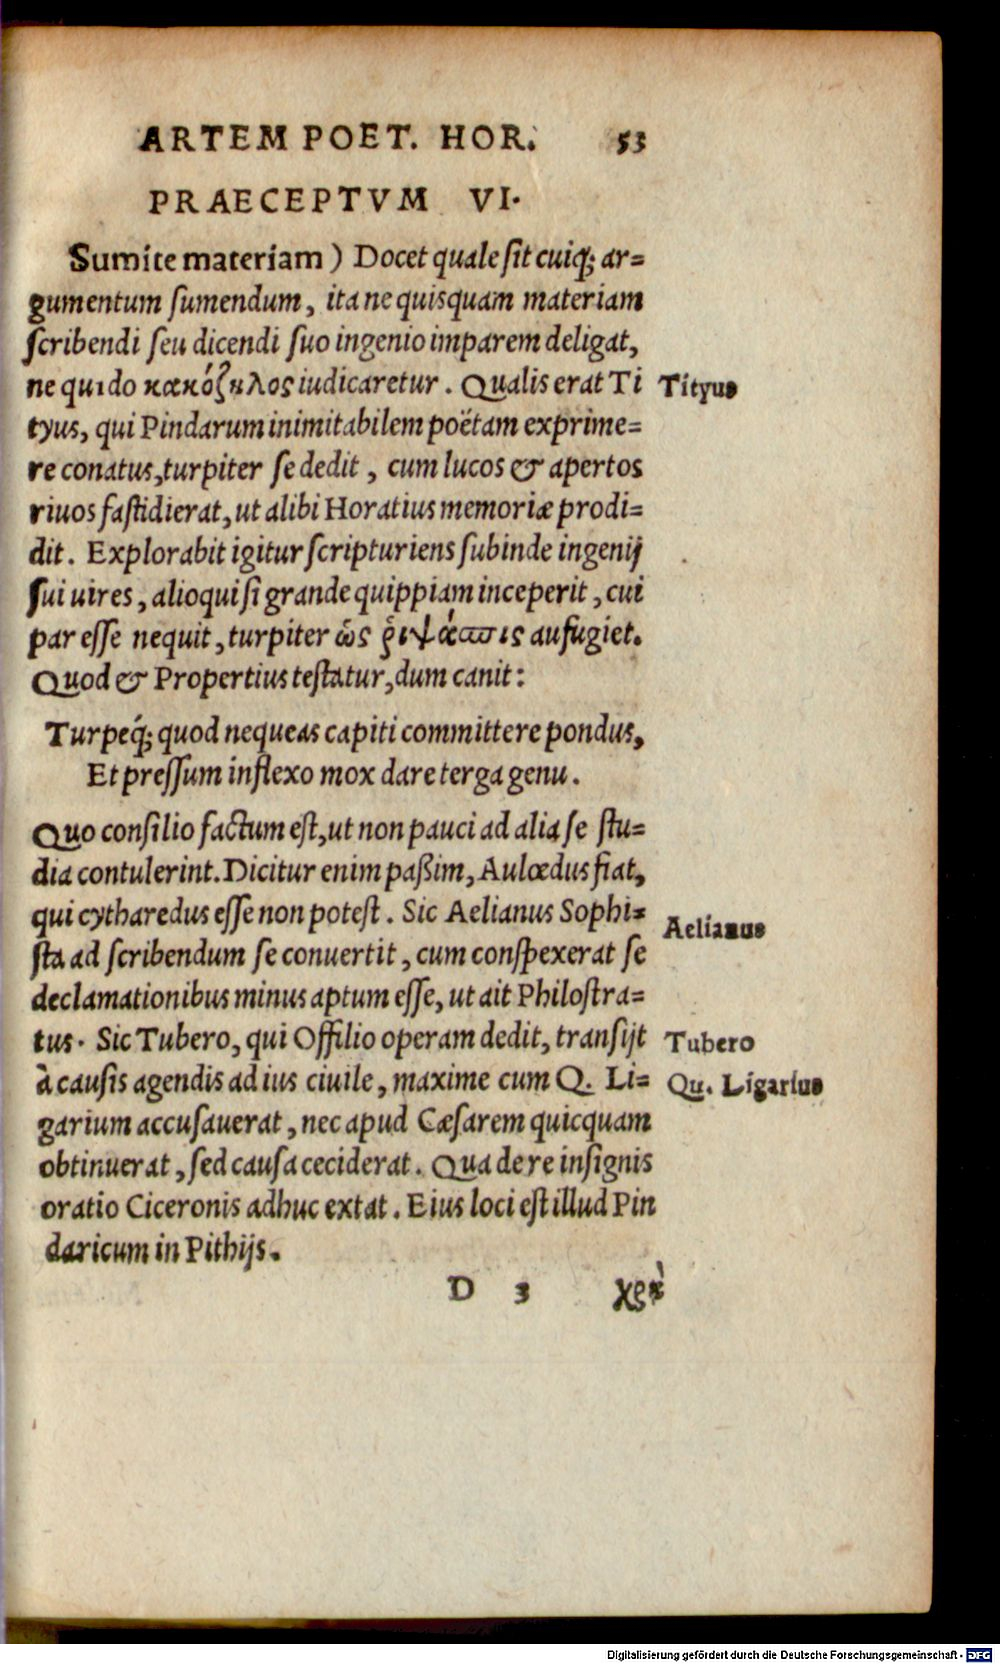 ARTEM POET. HOR. 53
PRAECEPTVM VI.
Sumite materiam) Docet quale ſit cuiq; ar=
gumentum ſumendum, ita ne quisquam materiam
ſcribendi ſeu dicendi ſuo ingenio imparem deligat,
ne quido κακόζηλος iudicaretur. Qualis erat Ti
Tityus
tyus, qui Pindarum inimitabilem poëtam exprime=
re conatus, turpiter ſe dedit, cum lucos & apertos
riuos faſtidierat, ut alibi Horatius memoriæ prodi=
dit. Explorabit igitur ſcripturiens ſubinde ingenij
ſui uires, alioqui ſi grande quippiam inceperit, cui
par eſſe nequit, turpiter ὡς ῥιψάσπις aufugiet.
Quod & Propertius teſtatur, dum canit:
Turpeq́; quod nequeas capiti committere pondus,
Et preſſum inflexo mox dare terga genu.
Quo conſilio factum eſt, ut non pauci ad alia ſe ſtu=
dia contulerint. Dicitur enim paßim, Aulœdus fiat,
qui cytharedus eſſe non poteſt. Sic Aelianus Sophi=
Aelianus
ſta ad ſcribendum ſe conuertit, cum conſpexerat ſe
declamationibus minus aptum eſſe, ut ait Philoſtra=
tus. Sic Tubero, qui Offilio operam dedit, tranſijt
Tubero
à cauſis agendis ad ius ciuile, maxime cum Q. Li=
Qu. Ligarius
garium accuſauerat, nec apud Cæſarem quicquam
obtinuerat, ſed cauſa ceciderat. Qua de re inſignis
oratio Ciceronis adhuc extat. Eius loci eſt illud Pin
daricum in Pithijs.
D 3 χρὴ
Digitalisierung gefördert durch die Deutsche Forschungsgemeinschaft - DFG